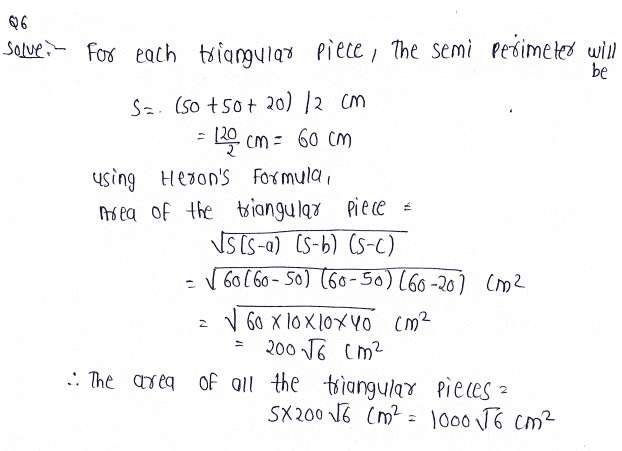 Q6
Solve:- For each triangular piece, The semi perimeter will be
S=. (50+50+20) /2 cm
= 120/2 cm = 60 cm
using Heron's Formula,
Area of the triangular piece =
√S(S-a) (S-b) (S-c)
= √60(60-50) (60-50) (60-20) cm2
= √60×10×10×40 cm2
= 200√6 cm2
∴ The area of all the triangular pieces =
5×200√6 cm2 = 1000√6 cm2